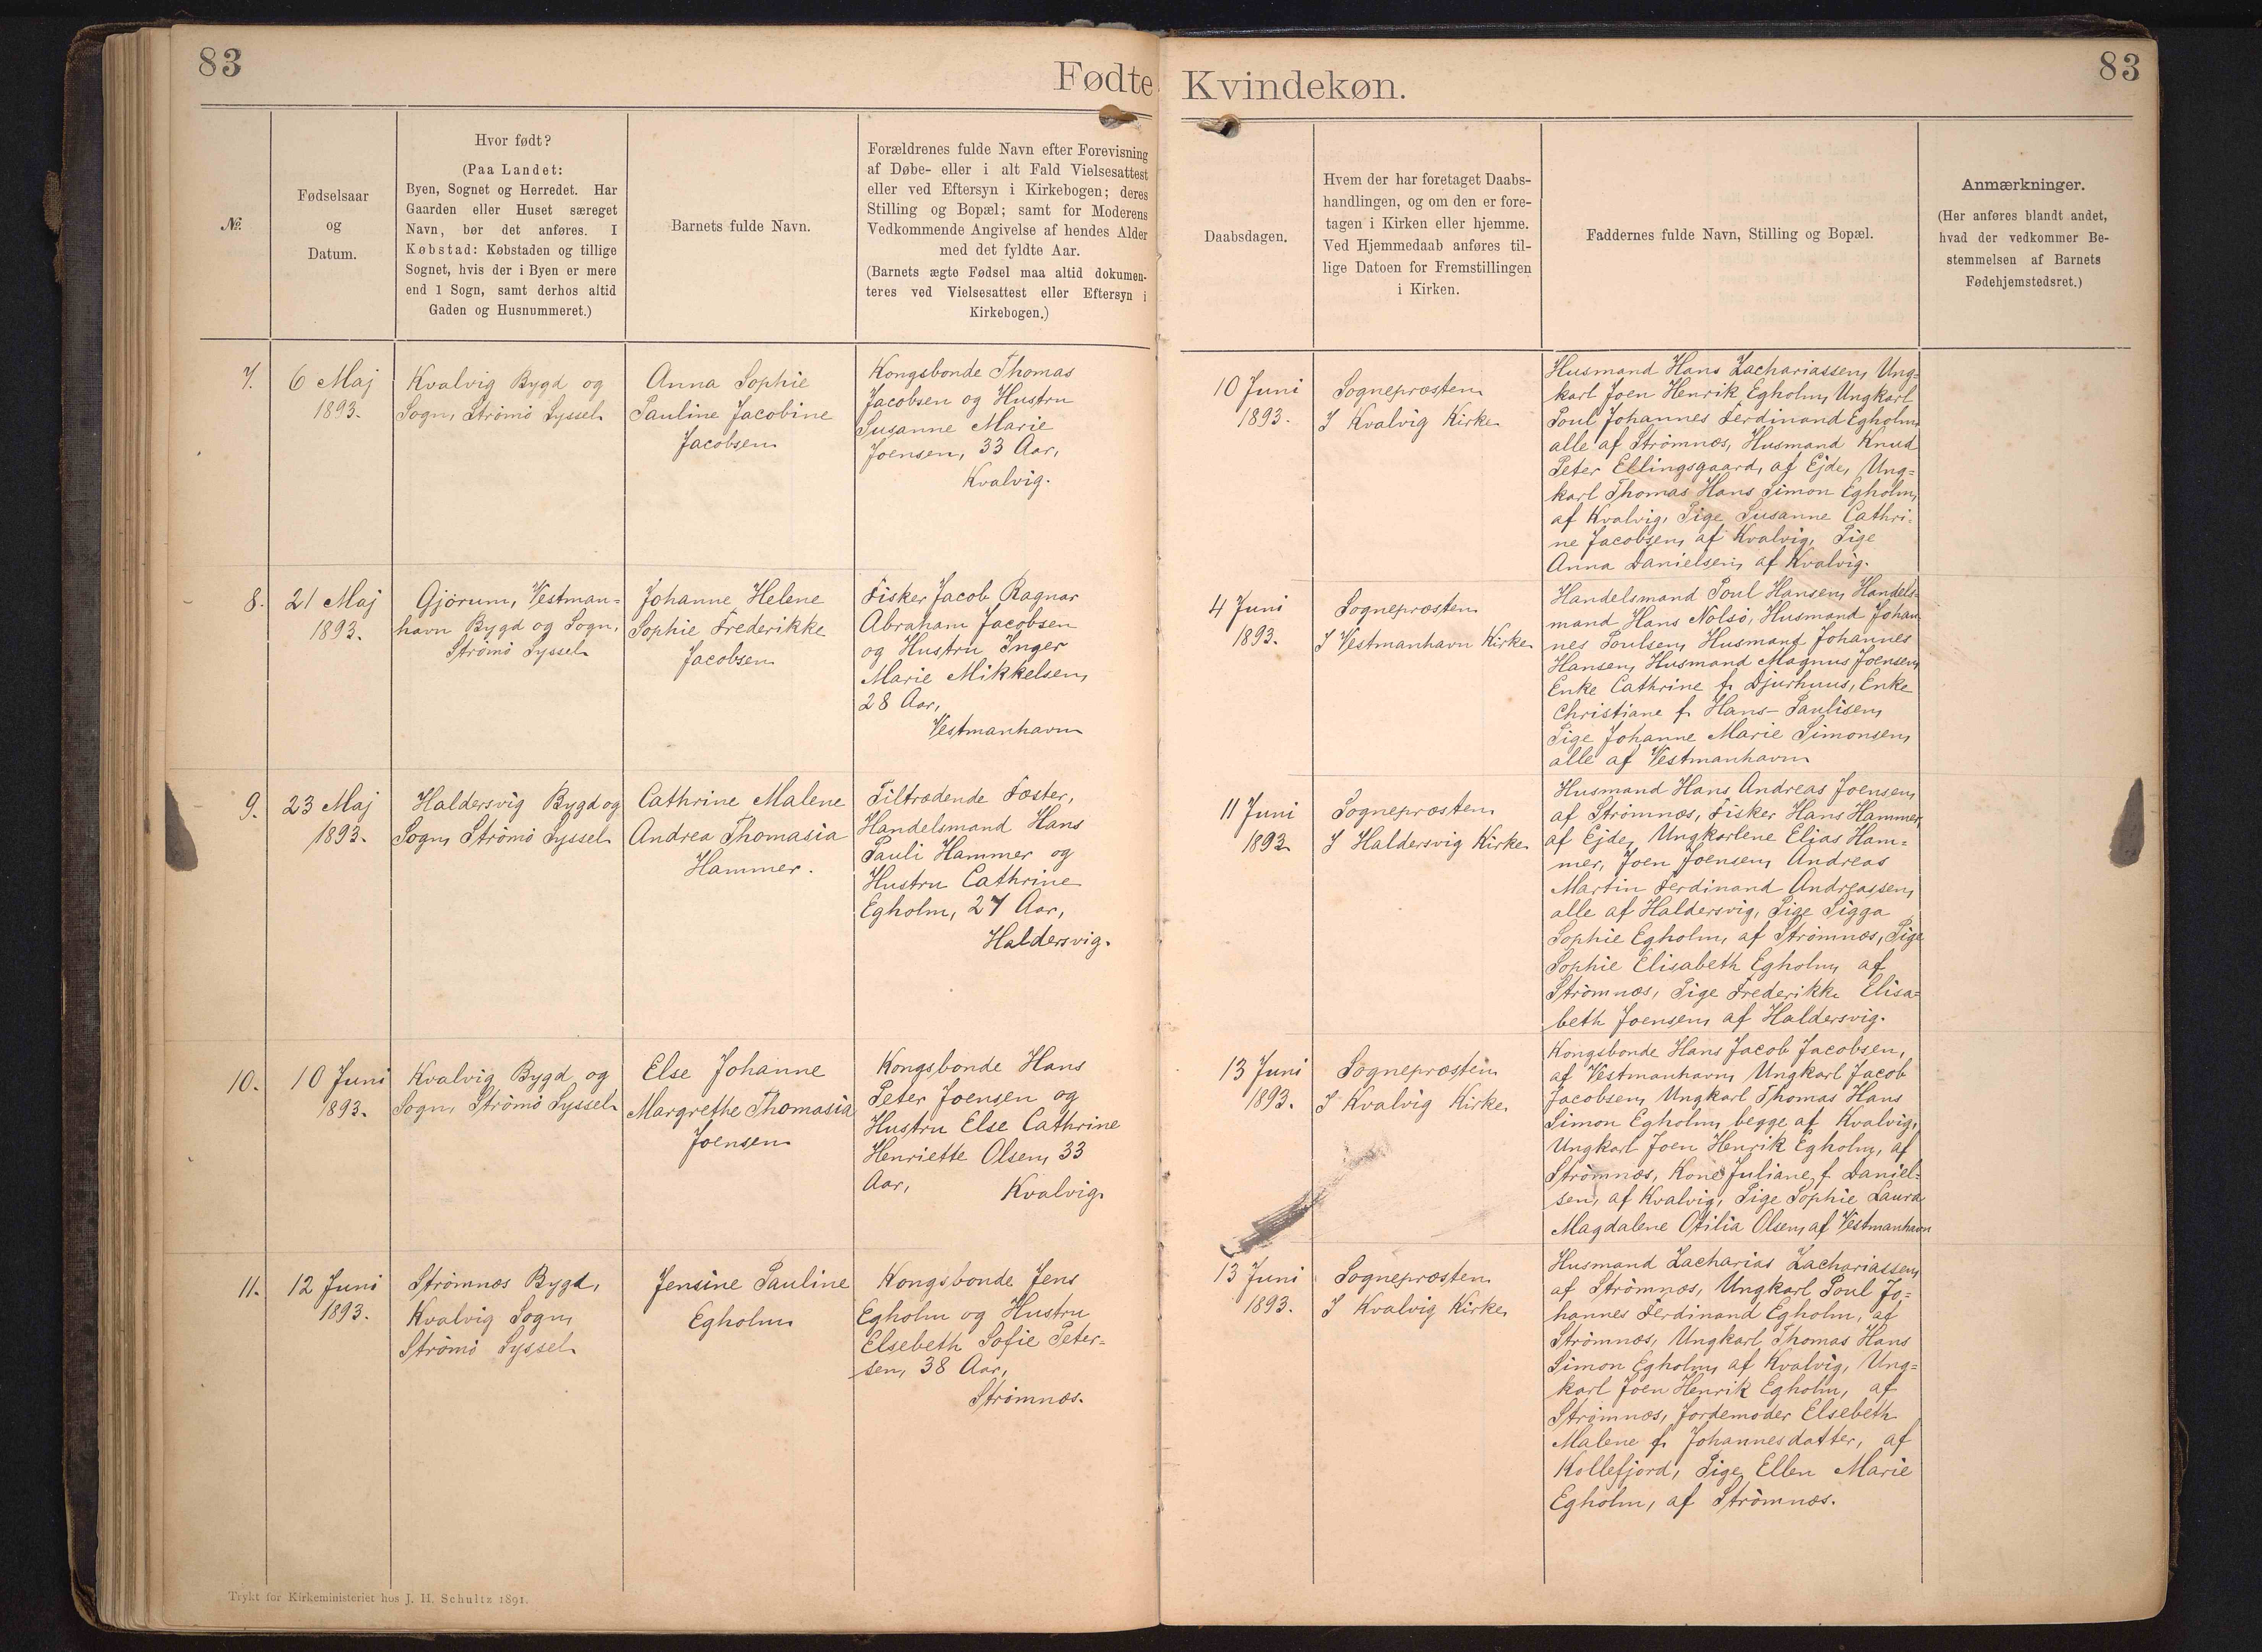 83
Fødte
№
Fødselsaar
og
Datum.
Hvor født?
(Paa Landet:
Byen, Sognet og Herredet. Har
Gaarden eller Huset særeget
Navn, bør det anføres. I
Købstad: Købstaden og tillige
Sognet, hvis der i Byen er mere
end 1 Sogn, samt derhos altid
Gaden og Husnummeret.)
Barnets fulde Navn.
Forældrenes fulde Navn efter Forevisning
af Døbe- eller i alt Fald Vielsesattest
eller ved Eftersyn i Kirkebogen; deres
Stilling og Bopæl; samt for Moderens
Vedkommende Angivelse af hendes Alder
med det fyldte Aar.
(Barnets ægte Fødsel maa altid dokumen-
teres ved Vielsesattest eller Eftersyn i
Kirkebogen.)
7.
6 Maj
1893.
Kvalvig Bygd og
Sogn, Strömö Syssel
Anna Sophie
Pauline Jacobine
Jacobsen
Kongsbonde Thomas
Jacobsen og Hustru
Susanne Marie
Joensen, 33 Aar,
Kvalvig.
8.
21 Maj
1893.
Gjörum, Vestman=
havn Bygd og Sogn,
Strömö Syssel
Johanne Helene
Sophie Frederikke
Jacobsen
Fisker Jacob Ragnar
Abraham Jacobsen
og Hustru Inger
Marie Mikkelsen,
28 Aar,
Vestmanhavn
9.
23 Maj
1893.
Haldersvig Bygd og
Sogn, Strömö Syssel
Cathrine Malene
Andrea Thomasia
Hammer.
Tiltrædende Fæster,
Handelsmand Hans
Pauli Hammer og
Hustru Cathrine
Egholm, 27 Aar,
Haldersvig.
10.
10 Juni
1893.
Kvalvig Bygd og
Sogn, Strömö Syssel
Else Johanne
Margrethe Thomasia
Joensen
Kongsbonde Hans
Peter Joensen og
Hustru Else Cathrine
Henriette Olsen, 33
Aar, Kvalvig
11.
12 Juni
1893.
Strömnæs Bygd,
Kvalvig Sogn,
Strömö Syssel
Jensine Pauline
Egholm
Kongsbonde Jens
Egholm og Hustru
Elsebeth Sofie Peter=
sen, 38 Aar,
Strömnæs.
Trykt for Kirkeministeriet hos J. H. Schultz 1891.
83
Kvindekøn.
Daabsdagen.
Hvem der har foretaget Daabs-
handlingen, og om den er fore-
tagen i Kirken eller hjemme.
Ved Hjemmedaab anføres til-
lige Datoen for Fremstillingen
i Kirken.
Faddernes fulde Navn, Stilling og Bopæl.
Anmærkninger.
(Her anføres blandt andet,
hvad der vedkommer Be-
stemmelsen af Barnets
Fødehjemstedsret.)
10 Juni
1893.
Sognepræsten
I Kvalvig Kirke
Husmand Hans Zachariassen, Ung=
karl Joen Henrik Egholm, Ungkarl
Poul Johannes Ferdinand Egholm
alle af Strömnæs, Husmand Knud
Peter Ellingsgaard, af Ejde, Ung=
karl Thomas Hans Simon Egholm,
af Kvalvig, Pige Susanne Cathri=
ne Jacobsen, af Kvalvig, Pige
Anna Danielsen, af Kvalvig.
4 Juni
1893.
Sognepræsten
I Vestmanhavn Kirke
Handelsmand Poul Hansen, Handels=
mand Hans Nolsö, Husmand Johan
nes Poulsen, Husmand Johannes
Hansen, Husmand Magnus Joensen,
Enke Cathrine f. Djurhuus, Enke
Christiane f. Hans-Paulisen,
Pige Johanne Marie Simonsen,
alle af Vestmanhavn
11 Juni
1893
Sognepræsten
I Haldersvig Kirke
Husmand Hans Andreas Joensen,
af Strömnæs, Fisker Hans Hammer,
af Ejde, Ungkarlene Elias Ham=
mer, Joen Joensen, Andreas
Martin Ferdinand Andreassen,
alle af Haldersvig, Pige Sigga
Sophie Egholm, af Strömnæs, Pige
Sophie Elisabeth Egholm, af
Strömnæs, Pige Frederikke Elisa=
beth Joensen, af Haldersvig.
13 Juni
1893.
Sognepræsten
I Kvalvig Kirke
Kongsbonde Hans Jacob Jacobsen,
af Vestmanhavn, Ungkarl Jacob
Jacobsen, Ungkarl Thomas Hans
Simon Egholm, begge af Kvalvig,
Ungkarl Joen Henrik Egholm, af
Strömnæs, Kone Juliane f. Daniel=
sen, af Kvalvig, Pige Sophie Laura
Magdalene Otilia Olsen, af Vestmanhavn
13 Juni
1893.
Sognepræsten
I Kvalvig Kirke
Husmand Zacharias Zachariassen,
af Strömnæs, Ungkarl Poul Jo=
hannes Ferdinand Egholm, af
Strömnæs, Ungkarl Thomas Hans
Simon Egholm, af Kvalvig, Ung=
karl Joen Henrik Egholm, af
Strömnæs, Jordemoder Elsebeth
Malene f. Johannesdatter, af
Kollefjord, Pige Ellen Marie
Egholm, af Strömnæs.